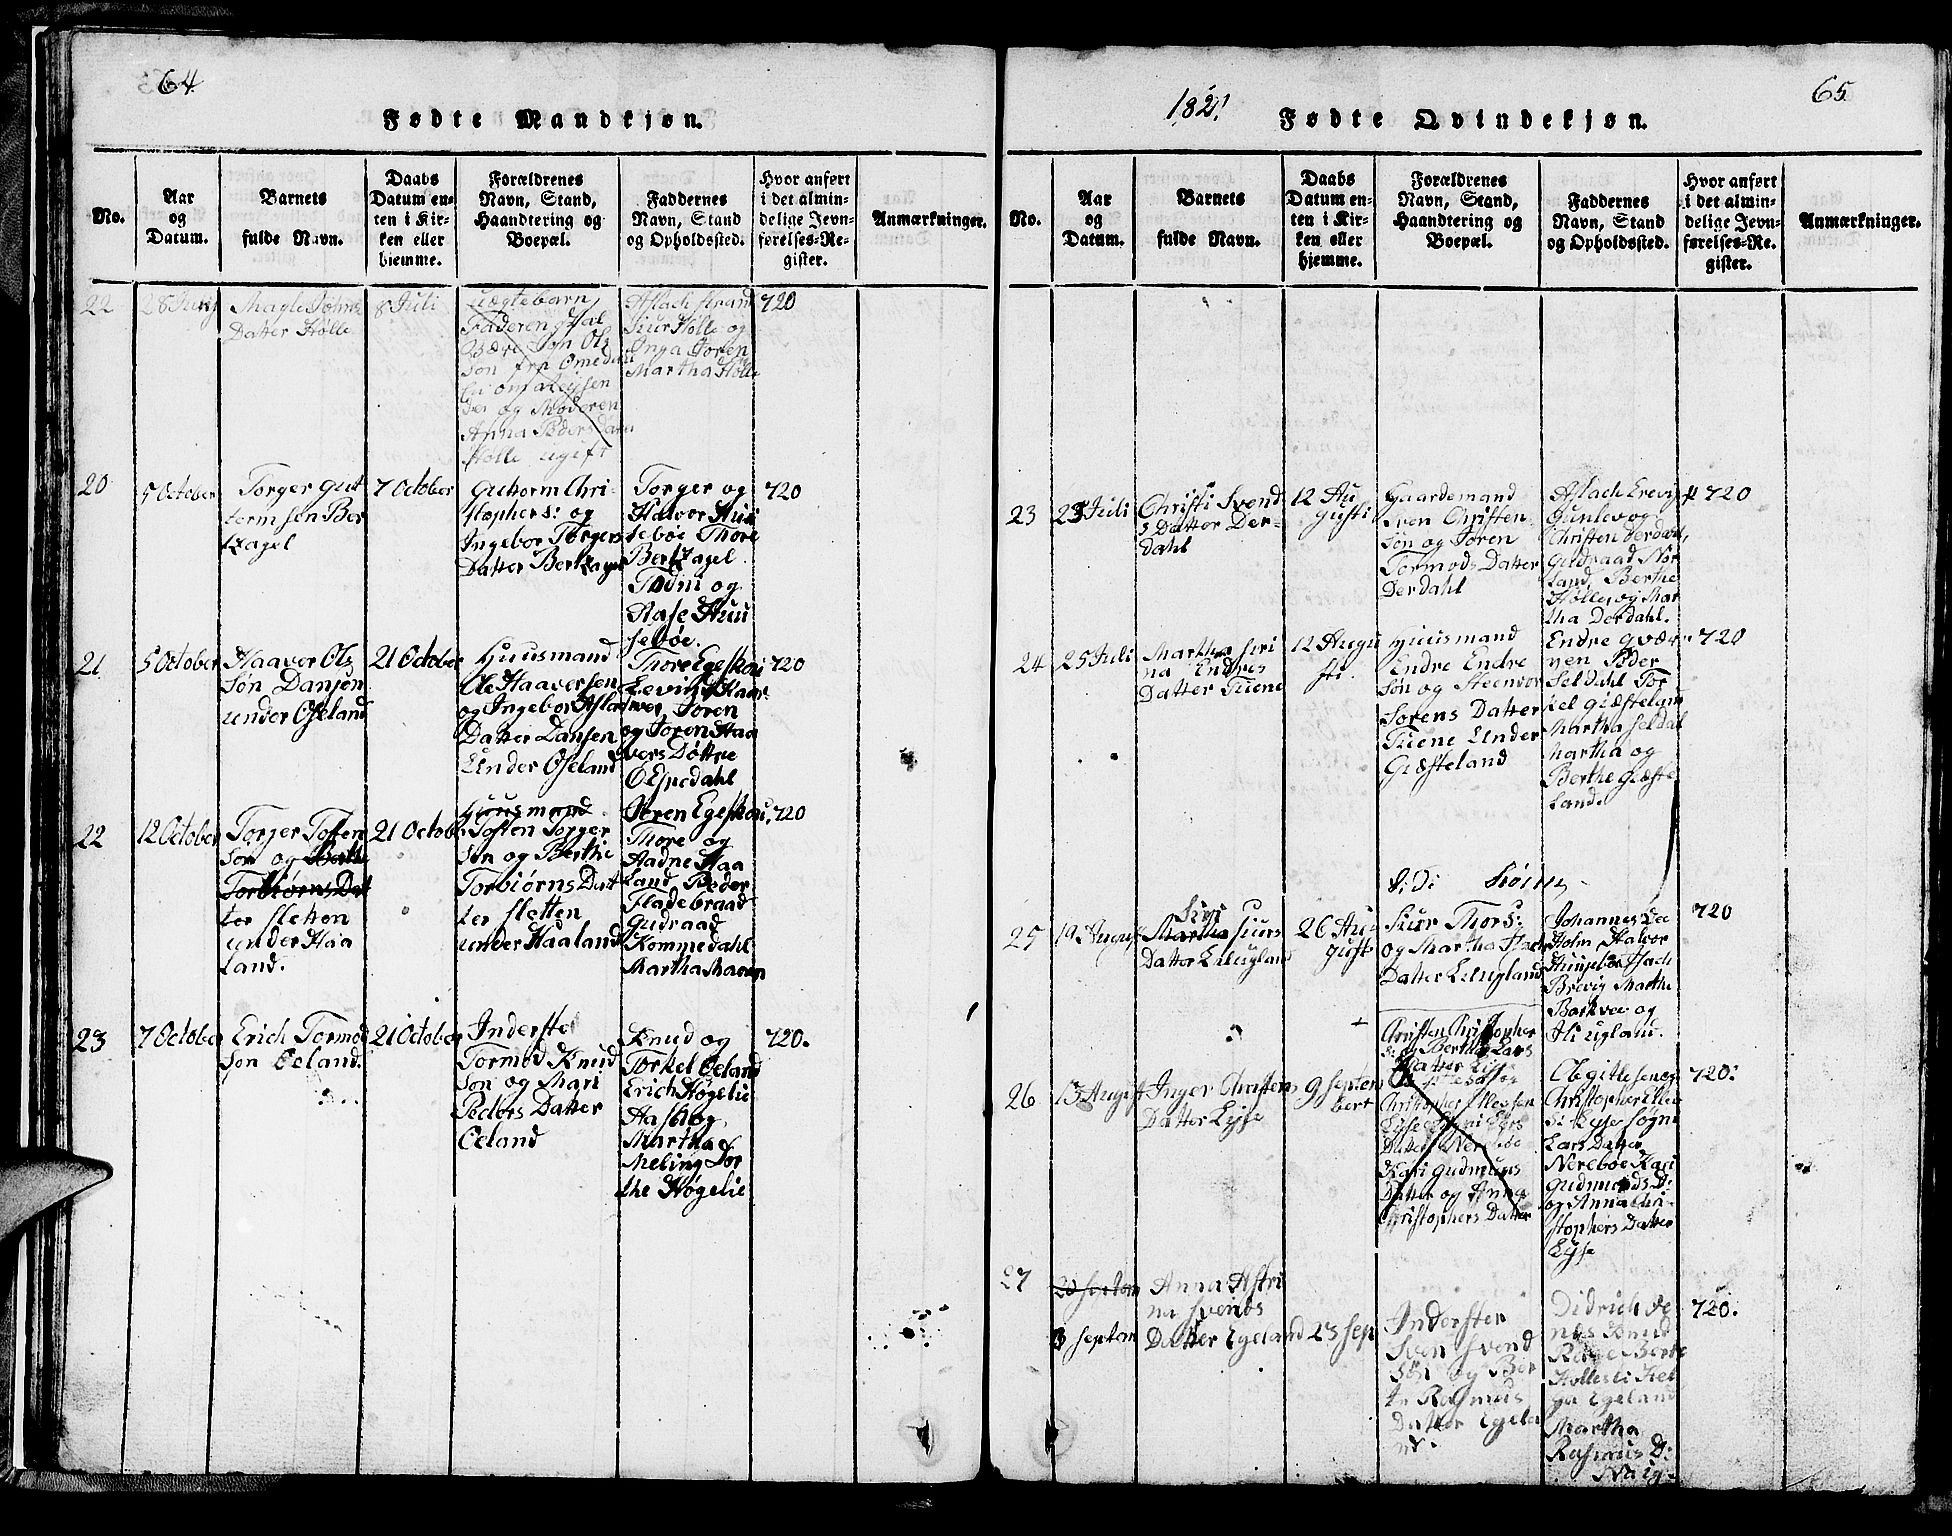 64
Fødte Mandkjøn.
No.
Aar
og
Datum.
Barnets
fulde Navn.
Daabs
Datum en-
ten i Kir-
ken eller
hjemme.
Forældrenes
Navn, Stand,
Haandtering og
Boepæl.
Faddernes
Navn, Stand
og Opholdssted.
Hvor anført
i det almin-
delige Jevn-
førelses-Re-
gister.
Anmærkninger.
22
28 Junj
Magle Johns
Datter Hølle
8 Juli
Uægtebarn
Faderen skal
være Jon Ols
Søn fra Omedal
der og Moderen
Anna Peders Datter
Hølle ugift
Aslach strand
Siur Hølle og
Inga Soren
Martha Hølle
720
20
5 October
Torger Gut
tormsen Ber
tzagel
7 October
Guttorm Chri-
stophers: og
Ingebor Torgers
Datter Bertzagel
Torger og
Halvor Huu
seboe Thore
Bertzagel
Todni og
Aase Huu
seboe.
720
21
5 October
Haavor Ols
Søn Dansen
under Oseland
21 October
Huusmand
Ole Haaversen
og Ingebor Aslac
Datter Dansen
Under Oseland
Thore Egeskou
Eeving Haa
Soren
og Soren Haa
vers Døttre
Espedahl
720
22
12 October
Torger Tosten
Søn og Berthe
Torbiørns Dat
ter sletten
under Haa
land.
21 Octob
Huusmand
Tosten Torger
Søn og Berthe
Torbiørns Dat
ter sletten
under Haaland
Soren Egeskou,
Thore og
Aadne Haa
land Peder
Fladebraad
Gudraad
Kommedahl
Martha Maren
720
23
7 October
Erich Tormod
Søn Oeland.
21 October
Inderste
Tormod Knud
Søn og Mari
Peders Datter
Oeland
Knud og
Torkel Oeland
Erich Høgelie
Aasa og
Martha
Meling Dor
the Høgelie
720.
1821
65
Fødte Qvindekjøn.
No.
Aar
og
Datum.
Barnets
fulde Navn.
Daabs
Datum en-
ten i Kir-
ken eller
hjemme.
Forældrenes
Navn, Stand,
Haandtering og
Boepæl.
Faddernes
Navn, Stand
og Opholdssted.
Hvor anført
i det almin-
delige Jevn-
førelses-Re-
gister.
Anmærkninger.
23
23 Juli
Christi Svend
s Datter Der-
dahl
12 Au
gusti
Gaardemand
Sven Christen
Søn og Soren
Tormods Datter
Derdahl
Aslach Brevig
Gunlev og
Christen Derdahl,
Gudraad Nor
land, Berthe
Hølle, og Mar
tha Derdahl.
720
24
25 Juli
Martha Seri
na Endres
Datter Tuene
12 Augu
sti.
Huusmand
Endre Endre
Søn og Steenvor
Sorens Datter
Tuene Under
Giæsteland
Endre Qvær
nen Peder
Seldahl Tor
kel Giæsteland
Martha Seldal
Martha og
Berthe Giæste
land.
720
25
19 August
Siri
Martha Siurs
Datter Lilugland
26 Au-
gust
Siur Thors:
og Martha Aslachs
Datter Lilugland
Johannes Lee
Holm Halvor
Huuseboe Aslach
Brevig Marthe
Barkvee og
Ali ugland.
720
26
13 August
Inger Christens
Datter Lyse
9 Septem
bert
Christen Christopher
s: og Bertha Lars
Datter Lyse
Christopher Ellevsen
Lyse
Datter Nerebøe
Kari Gudmuns
Datter og Anna
Christophers Datter
Ole Gitlesen og
Christopher Ellev
s: Lyse Søgne
Lars Datter
Nereboe Kari
Gudmunds D:
og Anna Chri-
stophers Datter
Lyse
720:
27
20 Septem
3 Septem
Anna Astri
na Svends
Datter Egeland
23 Sep
Inderster
Sven Svend
Søn og Ber
te Rasmus
Datter Egela
nd.
Didrich Ve
næs Knud
Rage Berte
Hollesli Hel
ga Egeland
Martha
Rasmus D:
720.